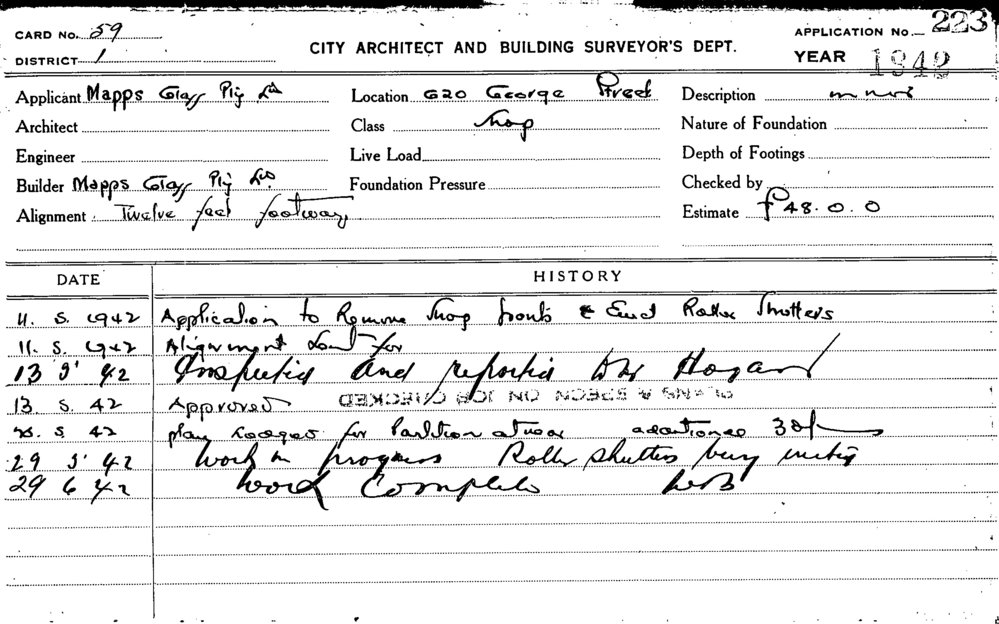 CARD No. 59
DISTRICT 1
CITY ARCHITECT AND BUILDING SURVEYOR'S DEPT.
APPLICATION No. 223
YEAR 1942
Applicant Mapps Glass Pty Ld
Location 620 George Street
Description
Architect
Class Shop
Nature of Foundation
Engineer
Live Load
Depth of Footings
Builder Mapps Glass Pty Ld.
Foundation Pressure
Checked by
Alignment Twelve feet footway
Estimate £48.0.0
DATE HISTORY
11. 5. 1942 Application to Remove Shop fronts & Erect Roller Shutters
11. 5. 1942 Alignment for
13 5' 42 Inspected and reported Hogan
PLANS & SPECN ON JOB CHECKED
13 5. 42 Approved
5. 42 plan lodged for Partition at rear additional 30/-
29 5' 42 Work in progress Roller shutters being
29 6 42 Work Complete